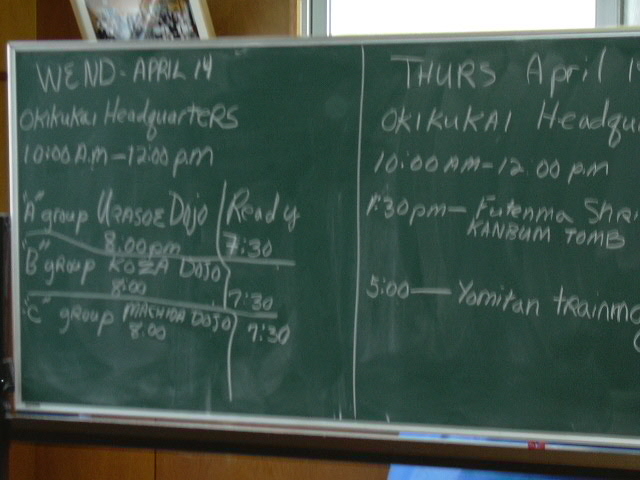 WEND - APRIL 14
OKiKuKai HeadquarteRS
10:00 A.M - 12:00 pm
"A" group URASOE DOJO Ready
8.00pm 7:30
"B" group KOZA DOJO
8:00 7:30
"C" group MACHIDA DOJO
8.00 7:30
THURS April
OKIKUKAI Headqu
10:00 AM - 12.00 p.m
1:30pm - Futenma Shri
KANBUM TOMB
5:00 - Yomitan